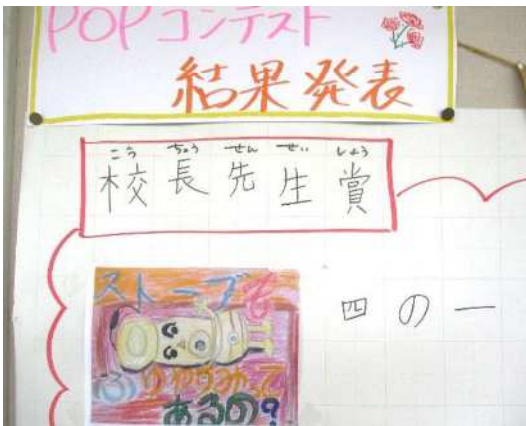 POPコンテスト
結果発表
こう ちょう せん せい しょう
校長先生賞
四の一
ストーブも
あるの?